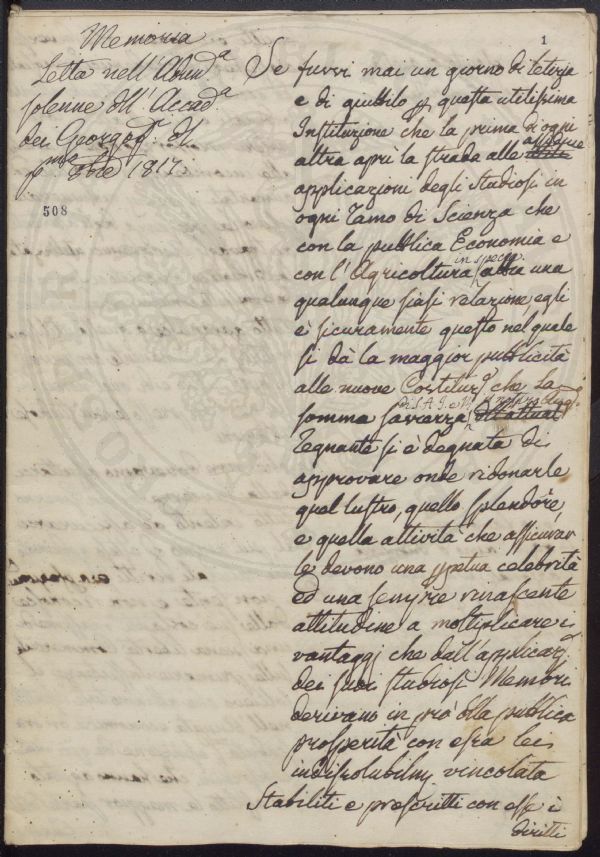 Memoria
Letta nell'Adun.a
solenne dell'Accad.a
dei Georgof. del
p.mo 8bre 1817.
508
1
Se fuvvi mai un giorno di letizia
e di giubbilo p questa utilissima
Instituzione che la prima d'ogni
altra aprì la strada alle assidue
applicazioni degli studiosi in
ogni ramo di Scienza che
con la pubblica Economia e
con l'Agricoltura in specie abbia una
qualunque siasi relazione, egli
è sicuramente questo nel quale
si dà la maggior pubblicità
alle nuove Costituz.i che la
somma saviezza di S.A.I. e R. il nostro Aug.o
Regnante si è degnata di
approvare onde ridonarle
quel lustro, quello splendore,
e quella attività che assicurar
le devono una ppetua celebrità
ed una sempre rinascente
attitudine a moltiplicare i
vantaggj che dall'applicaz.i
dei suoi studiosi Membri
derivano in prò della pubblica
prosperità con essa lei
indissolubilm. vincolata
Stabiliti e prescritti con esse i
diritti